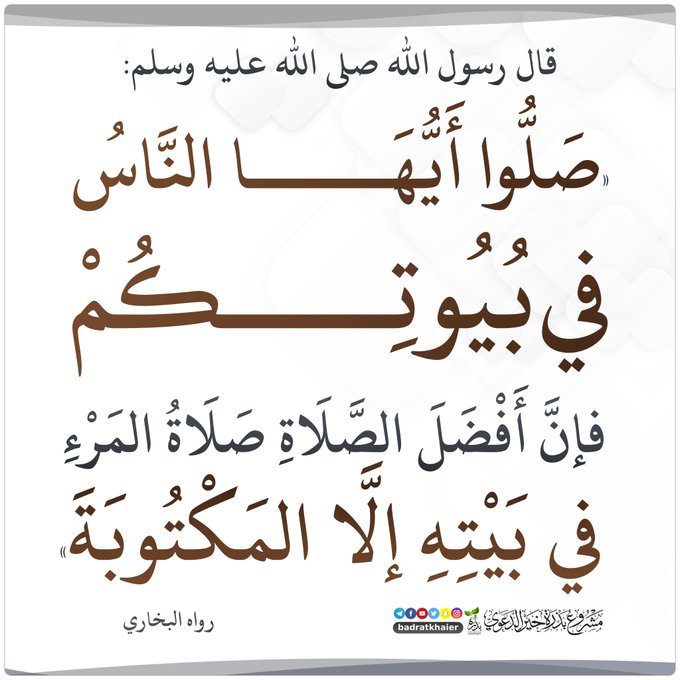 قال رسول الله صلى الله عليه وسلم:
«صَلُّوا أَيُّهَا النَّاسُ
في بُيُوتِكُمْ
فإنَّ أَفْضَلَ الصَّلَاةِ صَلَاةُ المَرْءِ
في بَيْتِهِ إلَّا المَكْتُوبَةَ»
مشروع بذرة خير الدعوي
badratkhaier
رواه البخاري